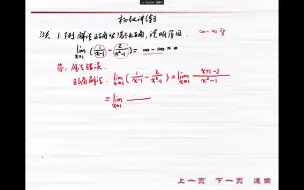 极限练习
1. 判断解法正确与否并改正确,说明原因. ∞-∞型
lim x→1 (1/(x-1) - 2/(x²-1)) = ∞-∞ = 0
答: 解法错误.
正确解法: lim x→1 (1/(x-1) - 2/(x²-1)) = lim x→1 (x+1-2)/(x²-1)
= lim x→1
上一页 下一页 返回